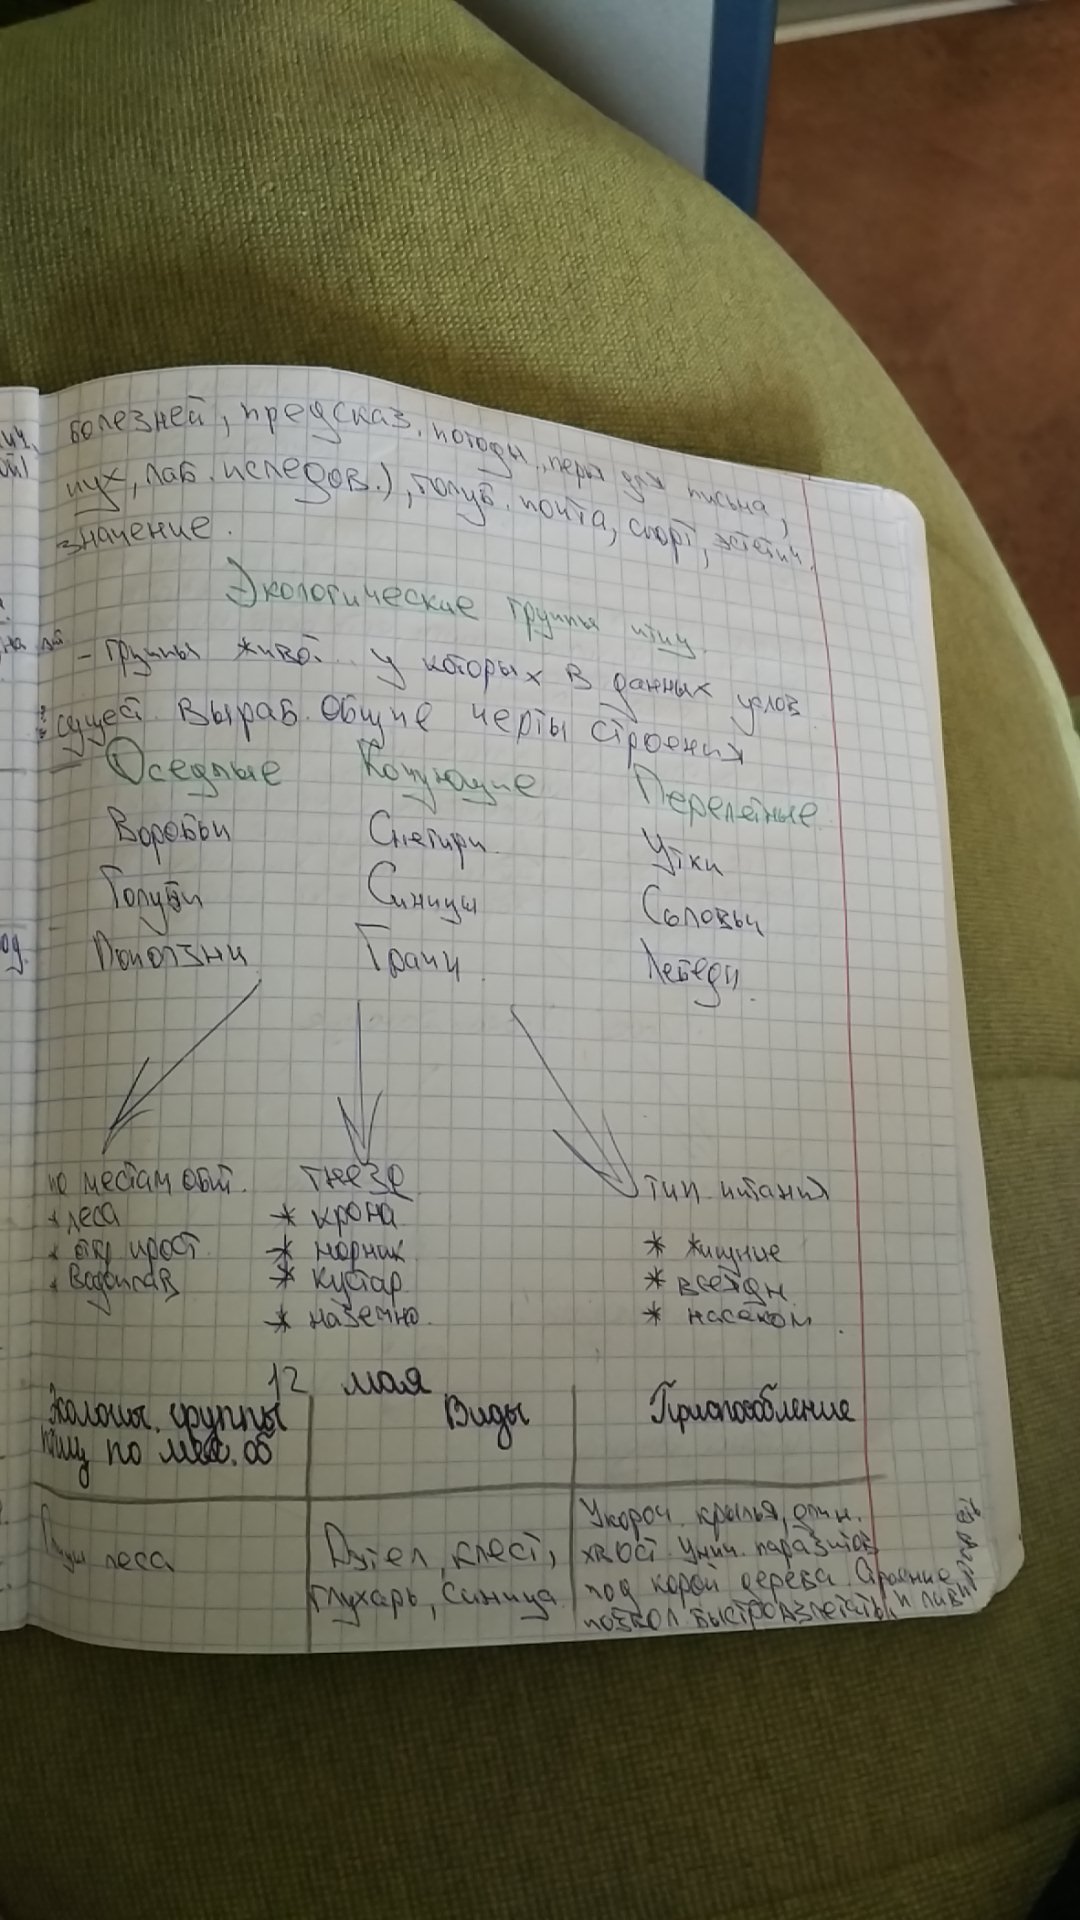 болезней, предсказ. погоды, перья для письма,
пух, лаб. иследов.), голуб. почта, спорт, эстетич.
значение.
Экологические группы птиц
- группы живот. у которых в данных услов.
сущест. выраб. общие черты строения
Оседлые Кочующие Перелетные
Воробьи Снегири Утки
Голуби Синицы Соловьи
Поползни Грачи Лебеди
по местам обит. гнезд тип питания
* леса * крона
* отк прост. * норник * хищние
* водоплав * кустар * всеядн.
* наземно. * насеком.
12 мая
Эколоич. группы Виды Приспособление
птиц по мес. об
Птицы леса Дятел, клест, Укороч. крылья, длин.
глухарь, синица хвост. Унич. паразитов
под корой дерева. Строение
позвол. быстро взлетать и